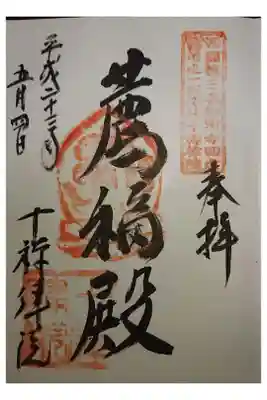 奉拝
薦福殿
平成二十三年
五月四日
十禅律院